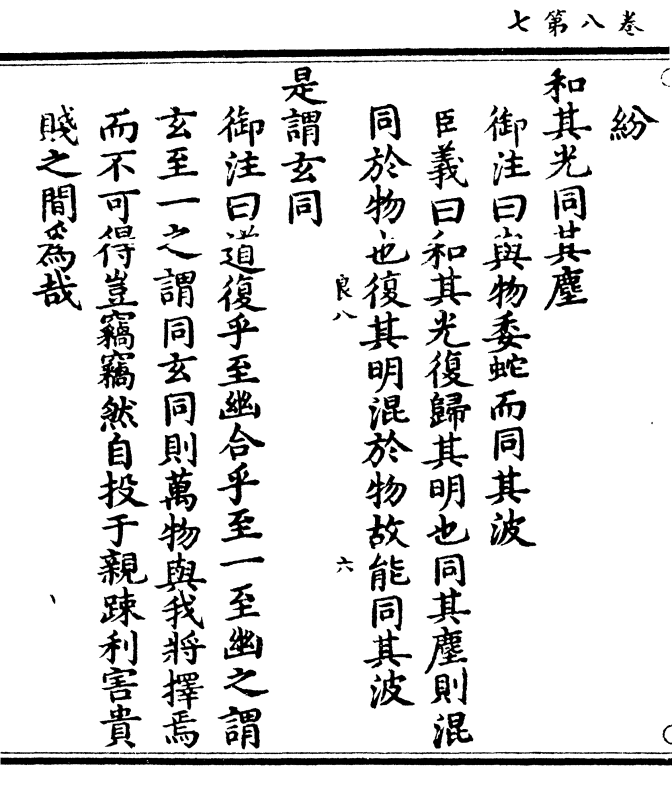 卷八第七
紛
和其光同其塵
御注曰與物委蛇而同其波
臣義曰和其光復歸其明也同其塵則混
同於物也復其明混於物故能同其波
良八 六
是謂玄同
御注曰道復乎至幽合乎至一至幽之謂
玄至一之謂同玄同則萬物與我將擇焉
而不可得豈竊竊然自投于親踈利害貴
賤之間為哉